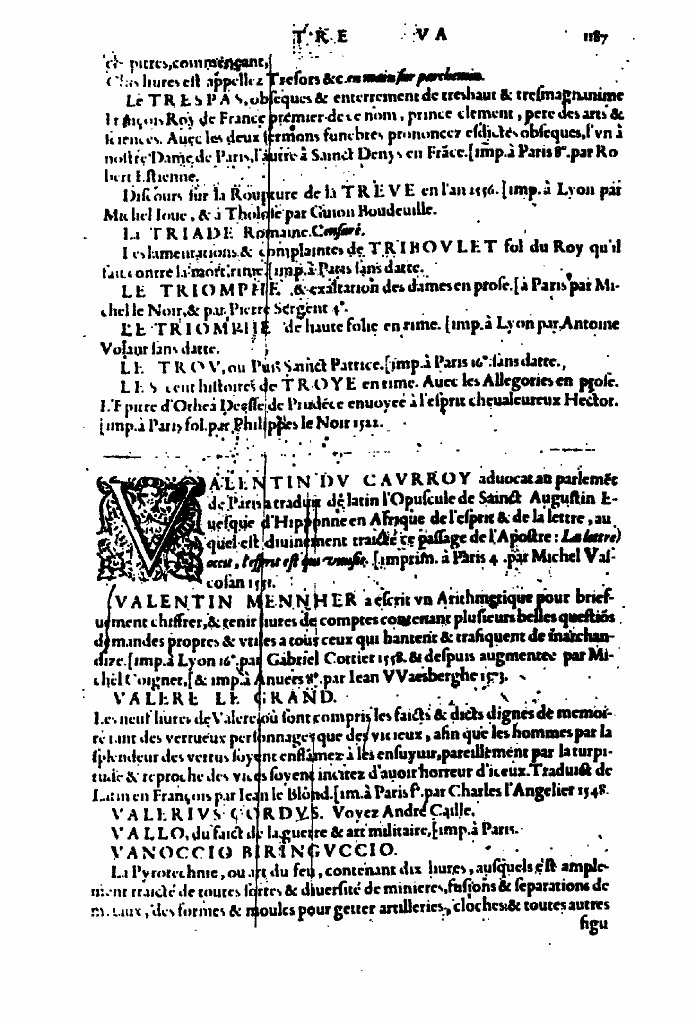 TRE VA 1187
pitres, commençant,
Ces liures est appellez Tresors &c. en main sur parchemin.
Le TRESPAS, obseques & enterrement de treshaut & tresmagnanime
François Roy de France premier de ce nom, prince clement, pere des arts &
sciences. Auec les deux sermons funebres prononcez esdictés obseques, l'vn à
nostre Dame de Paris, l'autre à Sainct Denys en Frāce. [imp. à Paris 8°. par Ro
bert Estienne.
Discours sur la Roupture de la TREVE en l'an 1556. [imp. à Lyon par
Michel Ioue, & à Tholose par Guion Boudeuille.
La TRIADE Romaine. Censuré.
Les lamentations & complaintes de TRIBOVLET fol du Roy qu'il
fait contre la mort, rime. [imp. à Paris sans datte.
LE TRIOMPHE & exaltation des dames en prose. [à Paris par Mi-
chel le Noir, & par Pierre Sergent 4°.
LE TRIOMPHE de haute folie en rime. [imp. à Lyon par Antoine
Volant sans datte.
LE TROV, ou Puis Sainct Patrice. [imp. à Paris 16°. sans datte.
LES cent histoires de TROYE en rime. Auec les Allegories en prose.
L'Epitre d'Othea Deesse de Prudēce enuoyee à l'esprit cheualeureux Hector.
[imp. à Paris fol. par Philippes le Noir 1522.
VALENTIN DV CAVRROY aduocat au parlemēt
de Paris a traduit de latin l'Opuscule de Sainct Augustin E-
uesque d'Hipponne en Afrique de l'esprit & de la lettre, au
quel est diuinement traicté ce passage de l'Apostre: La lettre
occit, l'esprit est qui viuifie. [imprim. à Paris 4. par Michel Vas-
cosan 1551.
VALENTIN MENNHER a escrit vn Arithmetique pour brief-
uement chiffrer, & tenir liures de comptes contenant plusieurs belles questiōs
demandes propres & vtiles a tous ceux qui hantent & trafiquent de marchan-
dize. [imp. à Lyon 16°. par Gabriel Cottier 1558. & despuis augmentee par Mi-
chel Coignet, [& imp. à Anuers 8°. par Iean VVaesberghe 1573.
VALERE LE GRAND.
Les neuf liures de Valere, où sont compris les faicts & dicts dignes de memoi-
re tant des vertueux personnages que des vicieux, afin que les hommes par la
splendeur des vertus soyent enflamez à les ensuyuir, pareillement par la turpi-
tude & reproche des vices soyent incitez d'auoir horreur d'iceux. Traduist de
Latin en François par Iean le Blond. [im. à Paris f°. par Charles l'Angelier 1548.
VALERIVS CORDVS. Voyez André Caille.
VALLO, du faict de la guerre & art militaire, [imp. à Paris.
VANOCCIO BIRINGVCCIO.
La Pyrotechnie, ou art du feu, contenant dix liures, ausquels est ample-
ment traicté de toutes sortes & diuersité de minieres, fusions & separations de
metaux, des formes & moules pour getter artilleries, cloches & toutes autres
figu